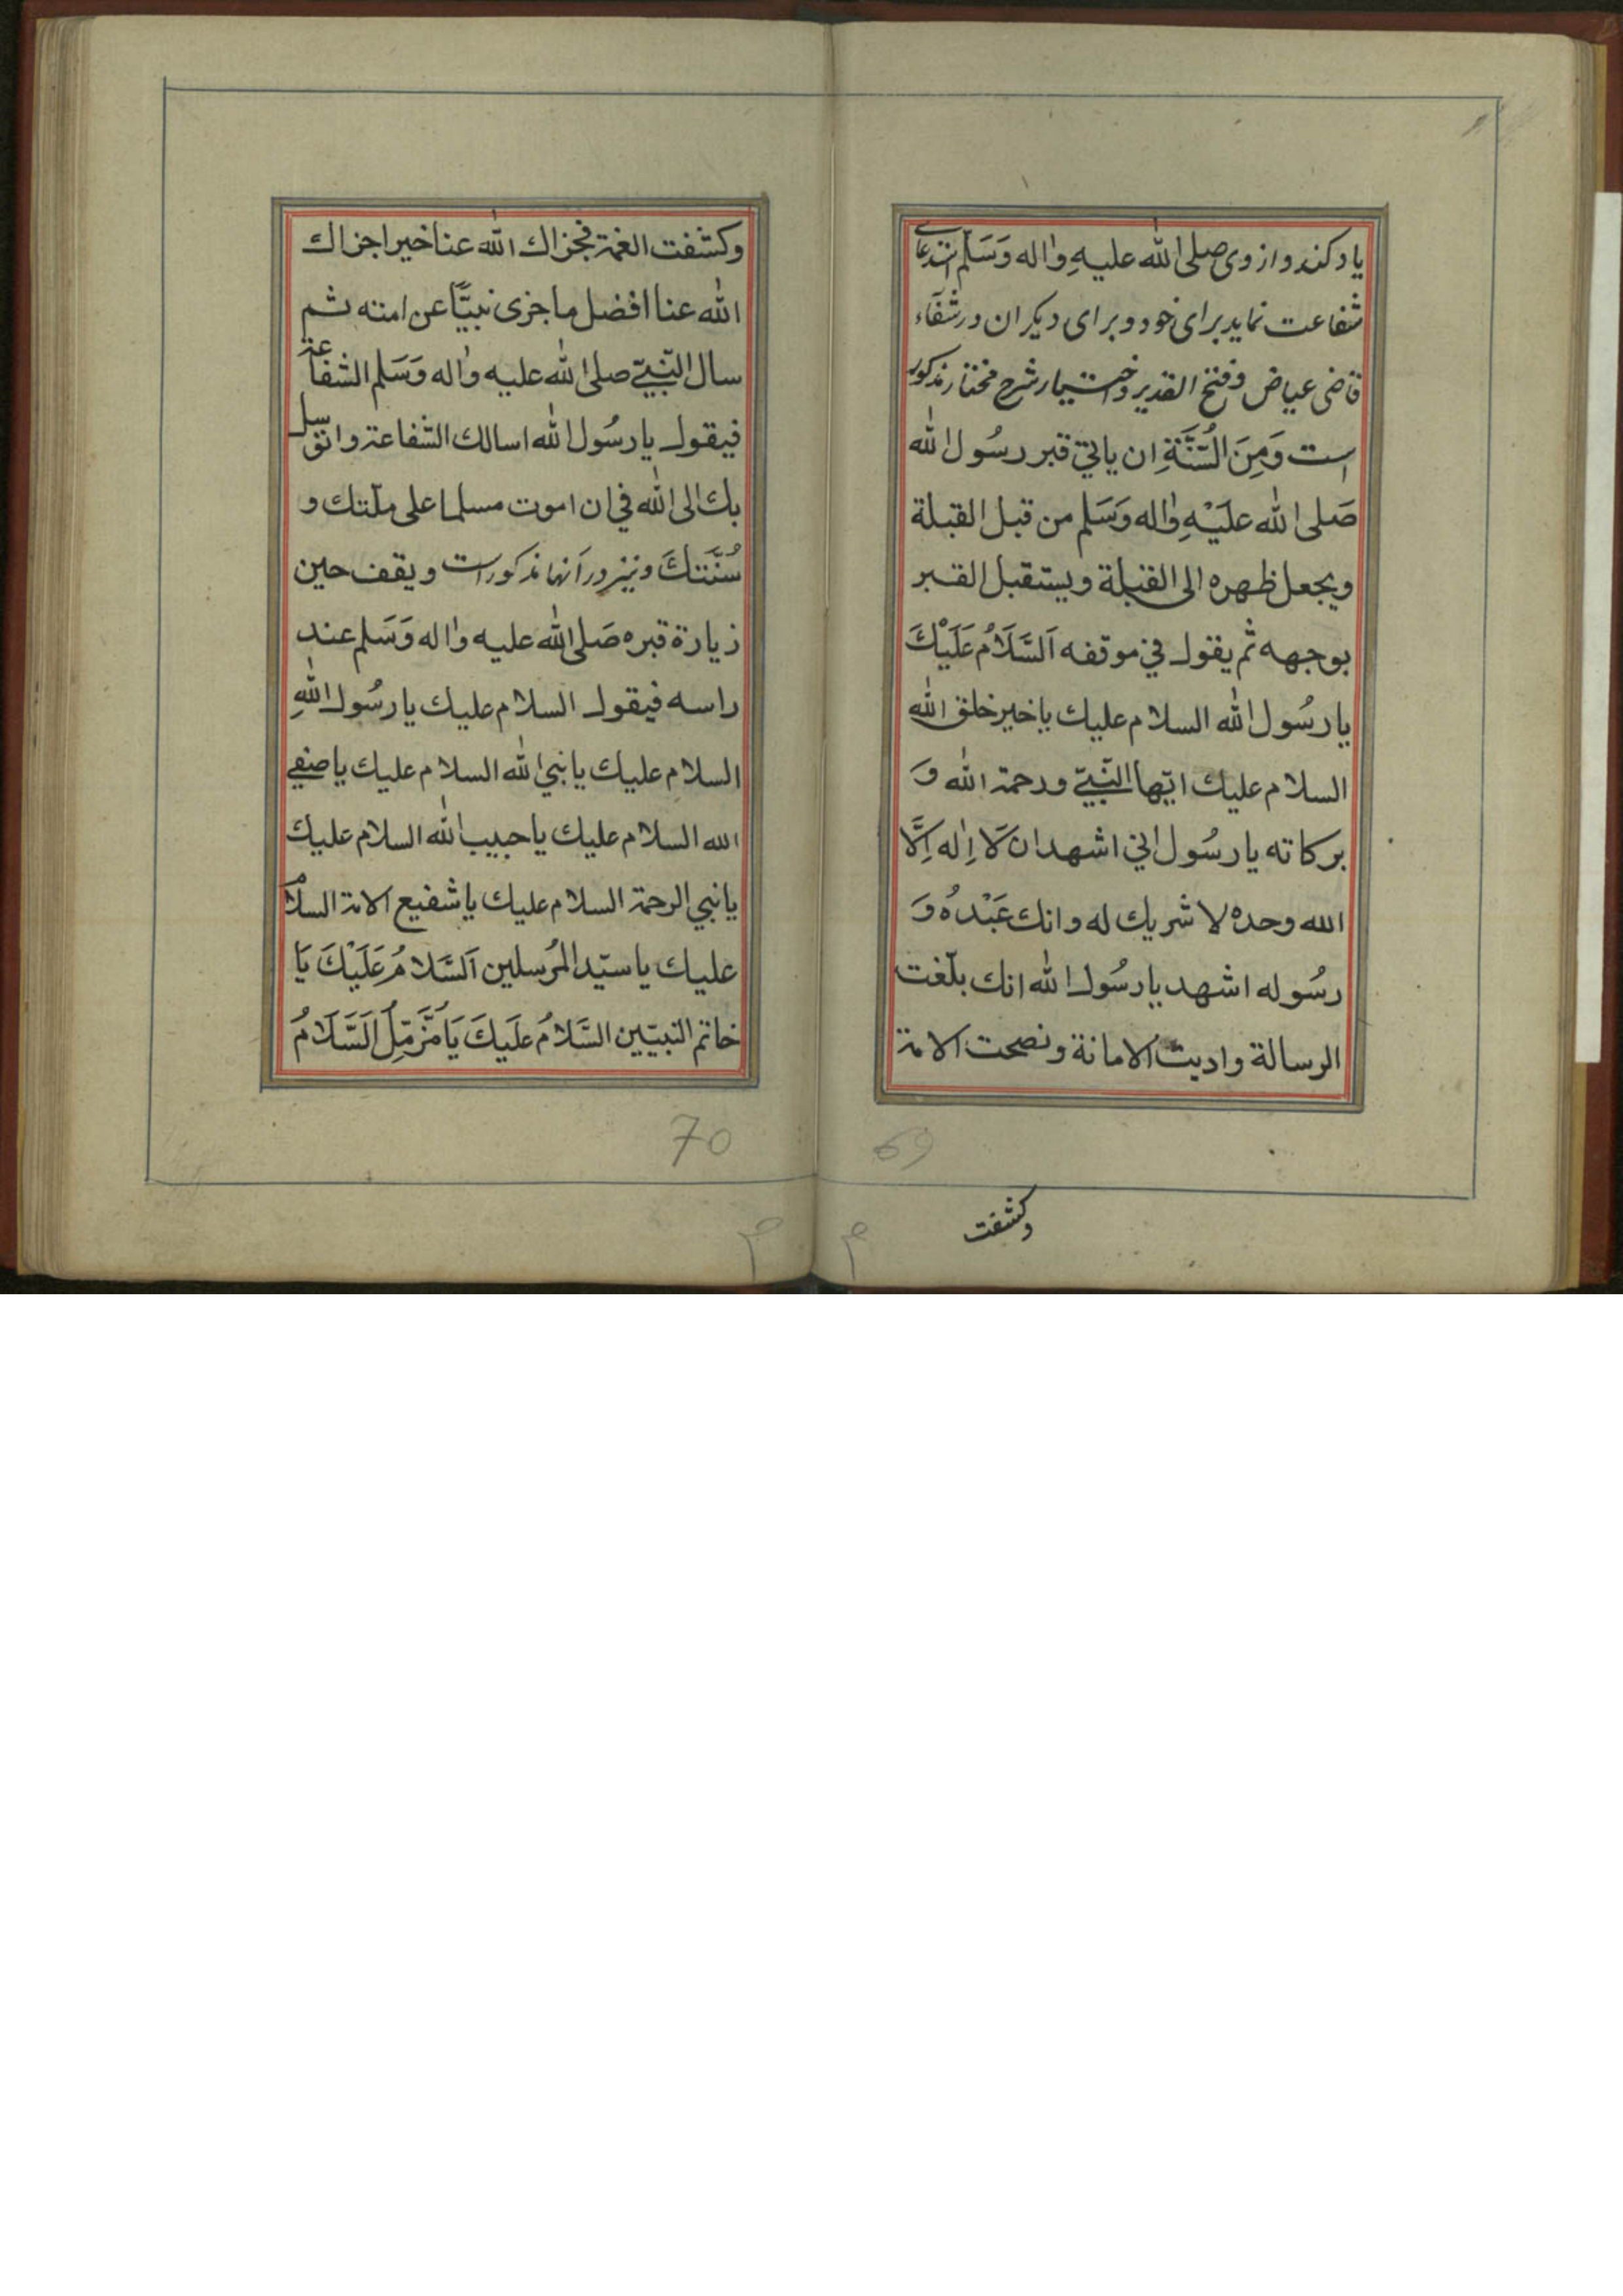 یاد کند و از وی صلی الله علیهِ واٰله وَسَلّم استدعای
شفاعت نماید برای خود و برای دیکران در شفآء
قاضی عیاض و فتح القدیر و اختیار شرح مختار مذکور
است وَمِنَ السُّنَّةِ ان یاتی قبر رسُول الله
صَلی الله علَیْهِ واٰله وَسَلم من قبل القبلة
ویجعل ظهره الی القبلة ویستقبل القبر
بوجهه ثم یقول فی موقفه اَلسَّلَامُ عَلَیْكَ
یا رسُول الله السلام علیك یا خیر خلق الله
السلام علیك ایّها النّبیّ ورحمة الله وَ
برکاته یا رسُول انی اشهد ان لَا اِلٰه اِلَّا
الله وحده لا شریك له وانك عَبْدُهُ وَ
رسُوله اشهد یا رسُول الله انك بلّغت
الرسالة وادیت الامانة ونصحت الامة
وکشفت
وکشفت الغمة فجزاك الله عنا خیرا جزاك
الله عنا افضل ما جزی نبیًّا عن امته ثم
سال النّبیّ صلی الله علیه واٰله وَسَلم الشفاعة
فیقول یا رسُول الله اسالك الشفاعة واتوسل
بك الی الله فی ان اموت مسلما علی ملّتك و
سُنَّتَكَ ونیز در آنها مذکور است ویقف حین
زیارة قبره صَلی الله علیه واٰله وَسَلم عند
راسه فیقول السلام علیك یا رسُول اللهِ
السلام علیك یا نبی الله السلام علیك یا صفی
الله السلام علیك یا حبیب الله السلام علیك
یا نبی الرحمة السلام علیك یا شفیع الامة السلامُ
علیك یا سیّد المُرسلین اَلسَّلامُ عَلَیْكَ یَا
خاتم النبیّین السَّلامُ علَیكَ یَا مُزَّمِّلُ اَلسَّلَامُ
70
69